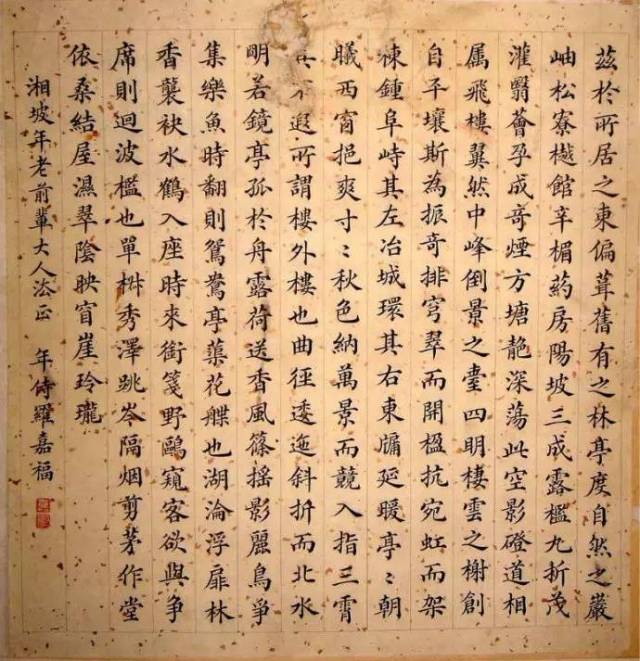 茲於所居之東偏葺舊有之林亭度自然之巖
岫松寮樾館辛楣葯房陽坡三成露檻九折茂
灌翳薈孕成奇煙方塘靘深蕩此空影磴道相
属飛樓翼然中峰倒景之臺四明棲雲之榭創
自平壤斯為振奇排穹翠而開楹抗宛虹而架
棟鍾阜峙其左冶城環其右東牖延暖亭〻朝
曦西窗挹爽寸〻秋色納萬景而競入指三霄
不遐所謂樓外樓也曲徑逶迤斜折而北水
明若鏡亭孤於舟露荷送香風篠搖影麗鳥爭
集樂魚時翻則鴛鴦亭蕖花艓也湖淪浮扉林
香襲袂水鶴入座時來銜箋野鷗窺客欲與爭
席則迴波檻也單椒秀澤跳岑隔烟剪茅作堂
依桑結屋濕翠陰映窅崖玲瓏
湘坡年老前輩大人法正 年侍羅嘉福